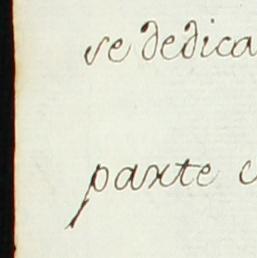 se dedica
parte c